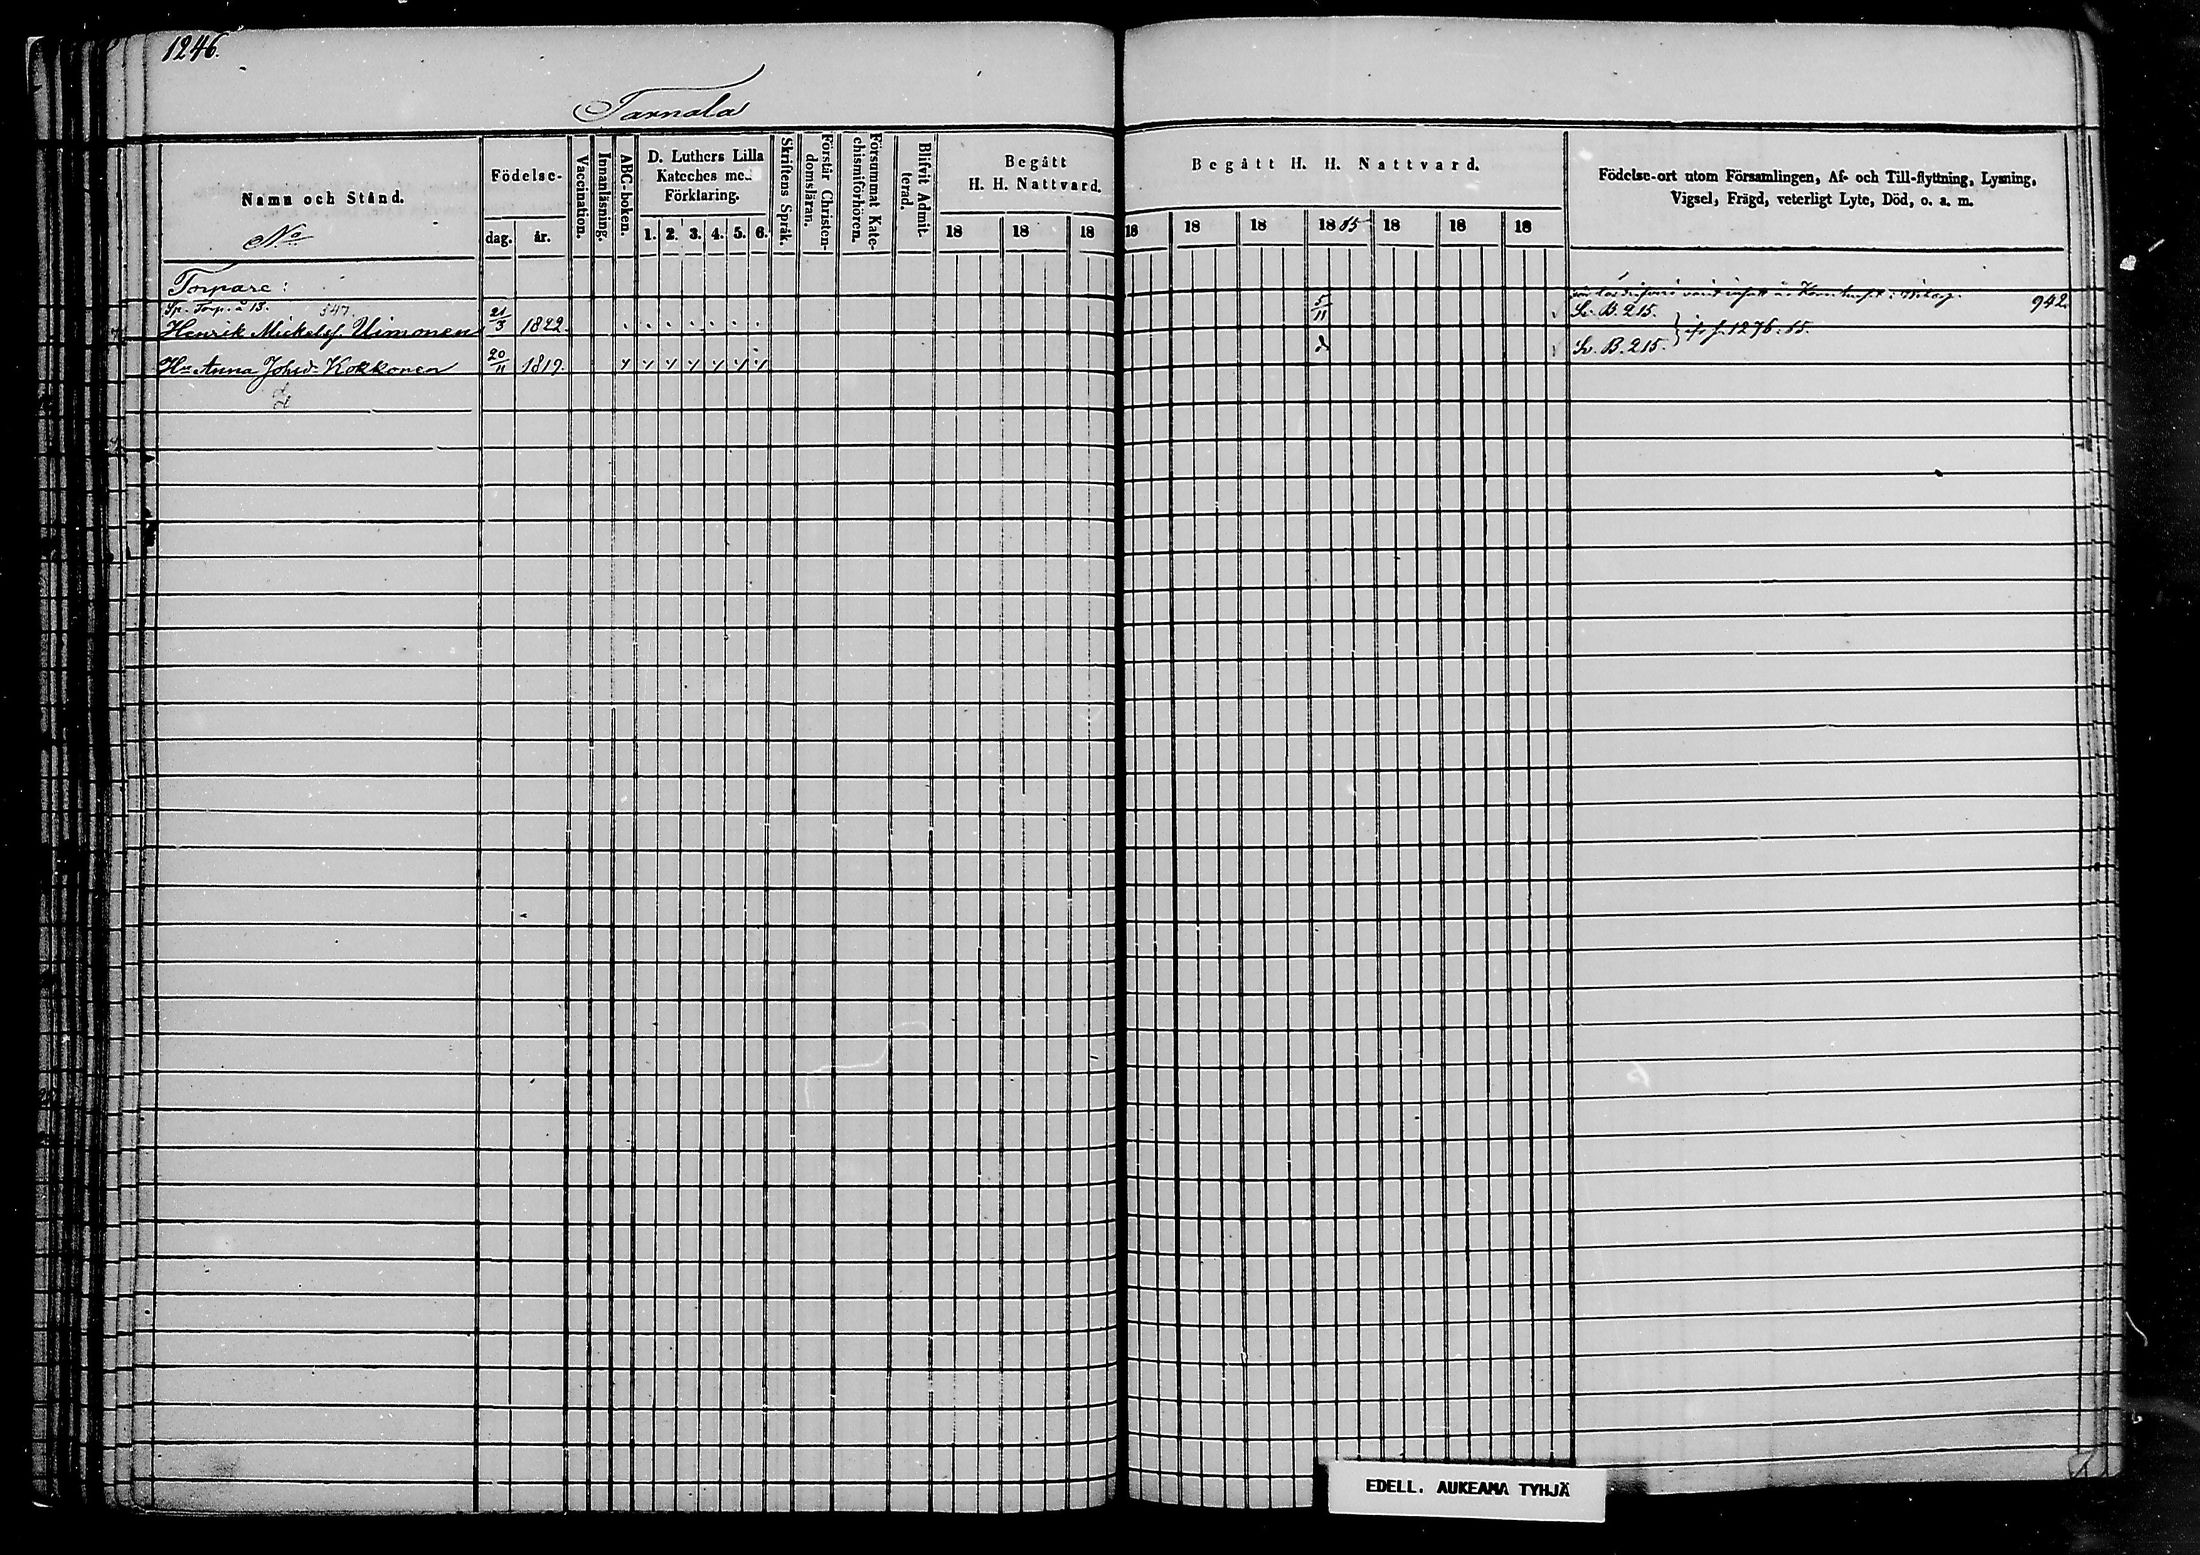 1246.
Tarnala
Namn och Stånd.
No
Födelse-
dag.
år.
Vaccination.
Innanläsning.
ABC-boken.
D. Luthers Lilla
Kateches med
Förklaring.
1. 2. 3. 4. 5. 6.
Skriftens Språk.
Förstår Christen-
domsläran.
Försummat Kate-
chismiförhören.
Blifvit Admit-
terad.
Begått
H. H. Nattvard.
18 18 18
Begått H. H. Nattvard.
18 18 18 1885 18 18 18
Födelse-ort utom Församlingen, Af- och Till-flyttning, Lysning,
Vigsel, Frägd, veterligt Lyte, Död, o. a. m.
Torpare:
Sp. Torp. å 13. 547.
Henrik Mickelss. Uimonen 21/3 1822. 5/11 Sv. B. 215. 942.
Hu Anna Johsd. Kokkonen 20/11 1819. d Sv. B. 215. } 1276. 85.
EDELL. AUKEAMA TYHJÄ